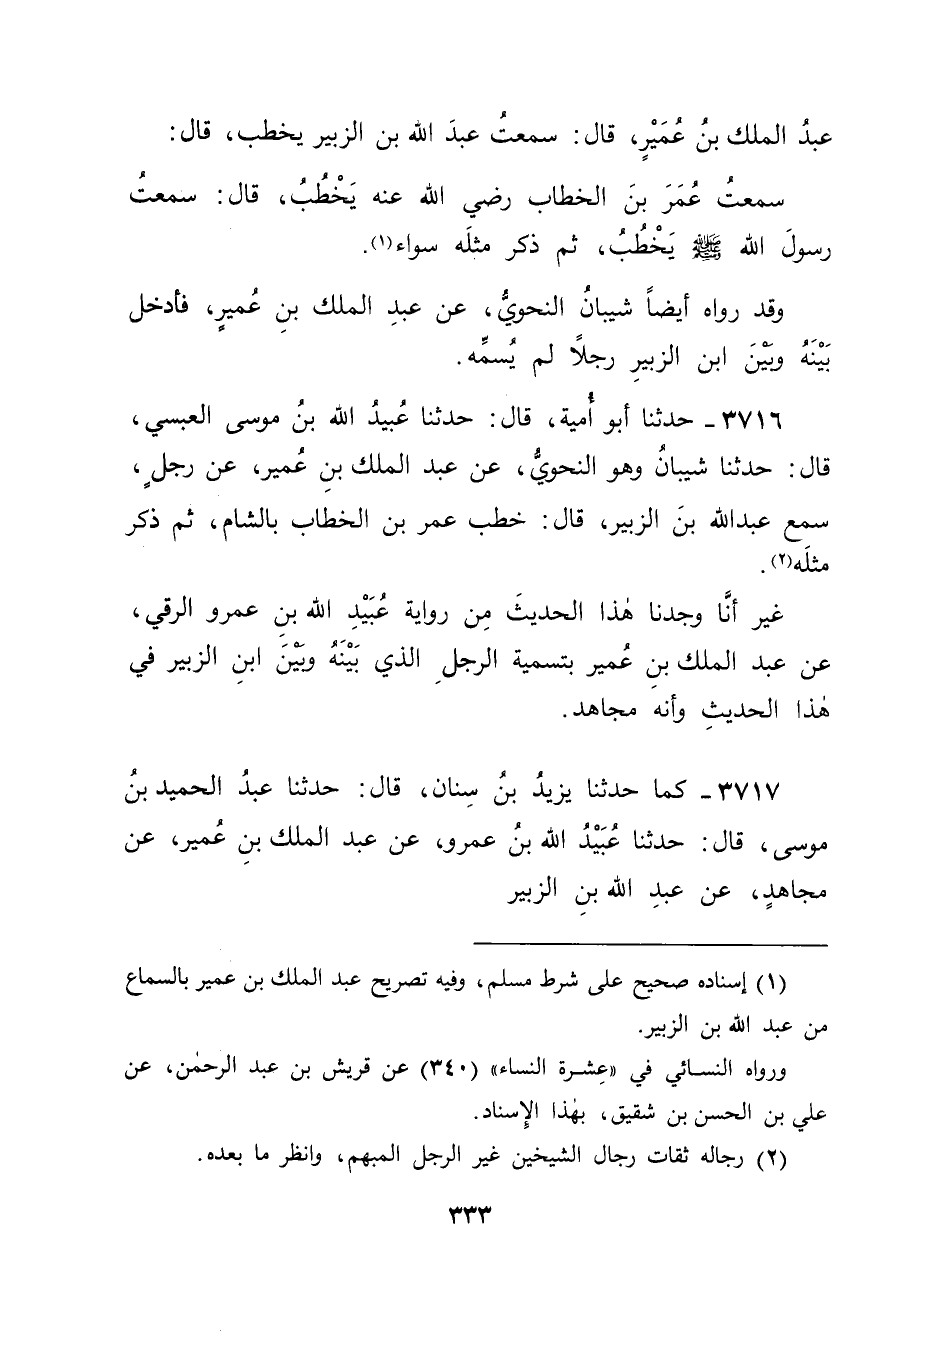 عبدُ الملك بنُ عُمَيْرٍ، قال: سمعتُ عبدَ الله بن الزبير يخطب، قال:
سمعتُ عُمَرَ بنَ الخطاب رضي الله عنه يَخْطُبُ، قال: سمعتُ
رسولَ الله ﷺ يَخْطُبُ، ثم ذكر مثلَه سواء(١).
وقد رواه أيضاً شيبانُ النحويُّ، عن عبدِ الملك بنِ عُميرٍ، فأدخل
بَيْنَهُ وبَيْنَ ابن الزبيرِ رجلاً لم يُسمِّه.
٣٧١٦ ـ حدثنا أبو أُمية، قال: حدثنا عُبيدُ الله بنُ موسى العبسي،
قال: حدثنا شيبانُ وهو النحويُّ، عن عبد الملك بنِ عُمير، عن رجلٍ،
سمع عبدالله بنَ الزبير، قال: خطب عمر بن الخطاب بالشام، ثم ذكر
مثلَه(٢).
غير أنَّا وجدنا هٰذا الحديثَ مِن رواية عُبَيْدِ الله بنِ عمرو الرقي،
عن عبد الملك بنِ عُمير بتسمية الرجلِ الذي بَيْنَهُ وبَيْنَ ابنِ الزبير في
هٰذا الحديثِ وأنه مجاهد.
٣٧١٧ ـ كما حدثنا يزيدُ بنُ سِنان، قال: حدثنا عبدُ الحميد بنُ
موسى، قال: حدثنا عُبَيْدُ الله بنُ عمرو، عن عبد الملك بنِ عُمير، عن
مجاهدٍ، عن عبدِ الله بنِ الزبير
(١) إسناده صحيح على شرط مسلم، وفيه تصريح عبد الملك بن عمير بالسماع
من عبد الله بن الزبير.
ورواه النسائي في «عِشرة النساء» (٣٤٠) عن قريش بن عبد الرحمٰن، عن
علي بن الحسن بن شقيق، بهٰذا الإِسناد.
(٢) رجاله ثقات رجال الشيخين غير الرجل المبهم، وانظر ما بعده.
٣٣٣